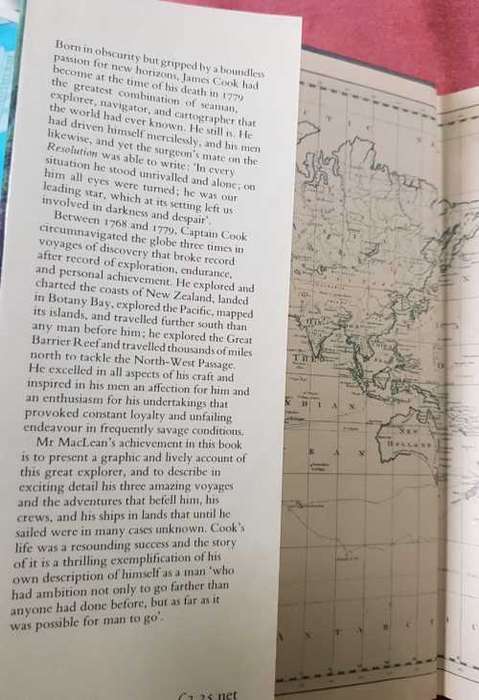 Born in obscurity but gripped by a boundless
passion for new horizons, James Cook had
become at the time of his death in 1779
the greatest combination of seaman,
explorer, navigator, and cartographer that
the world had ever known. He still is. He
had driven himself mercilessly, and his men
likewise, and yet the surgeon's mate on the
Resolution was able to write: 'In every
situation he stood unrivalled and alone; on
him all eyes were turned; he was our
leading star, which at its setting left us
involved in darkness and despair'.
Between 1768 and 1779, Captain Cook
circumnavigated the globe three times in
voyages of discovery that broke record
after record of exploration, endurance,
and personal achievement. He explored and
charted the coasts of New Zealand, landed
in Botany Bay, explored the Pacific, mapped
its islands, and travelled further south than
any man before him; he explored the Great
Barrier Reef and travelled thousands of miles
north to tackle the North-West Passage.
He excelled in all aspects of his craft and
inspired in his men an affection for him and
an enthusiasm for his undertakings that
provoked constant loyalty and unfailing
endeavour in frequently savage conditions.
Mr MacLean's achievement in this book
is to present a graphic and lively account of
this great explorer, and to describe in
exciting detail his three amazing voyages
and the adventures that befell him, his
crews, and his ships in lands that until he
sailed were in many cases unknown. Cook's
life was a resounding success and the story
of it is a thrilling exemplification of his
own description of himself as a man 'who
had ambition not only to go farther than
anyone had done before, but as far as it
was possible for man to go'.
net
NEW
HOLLAND